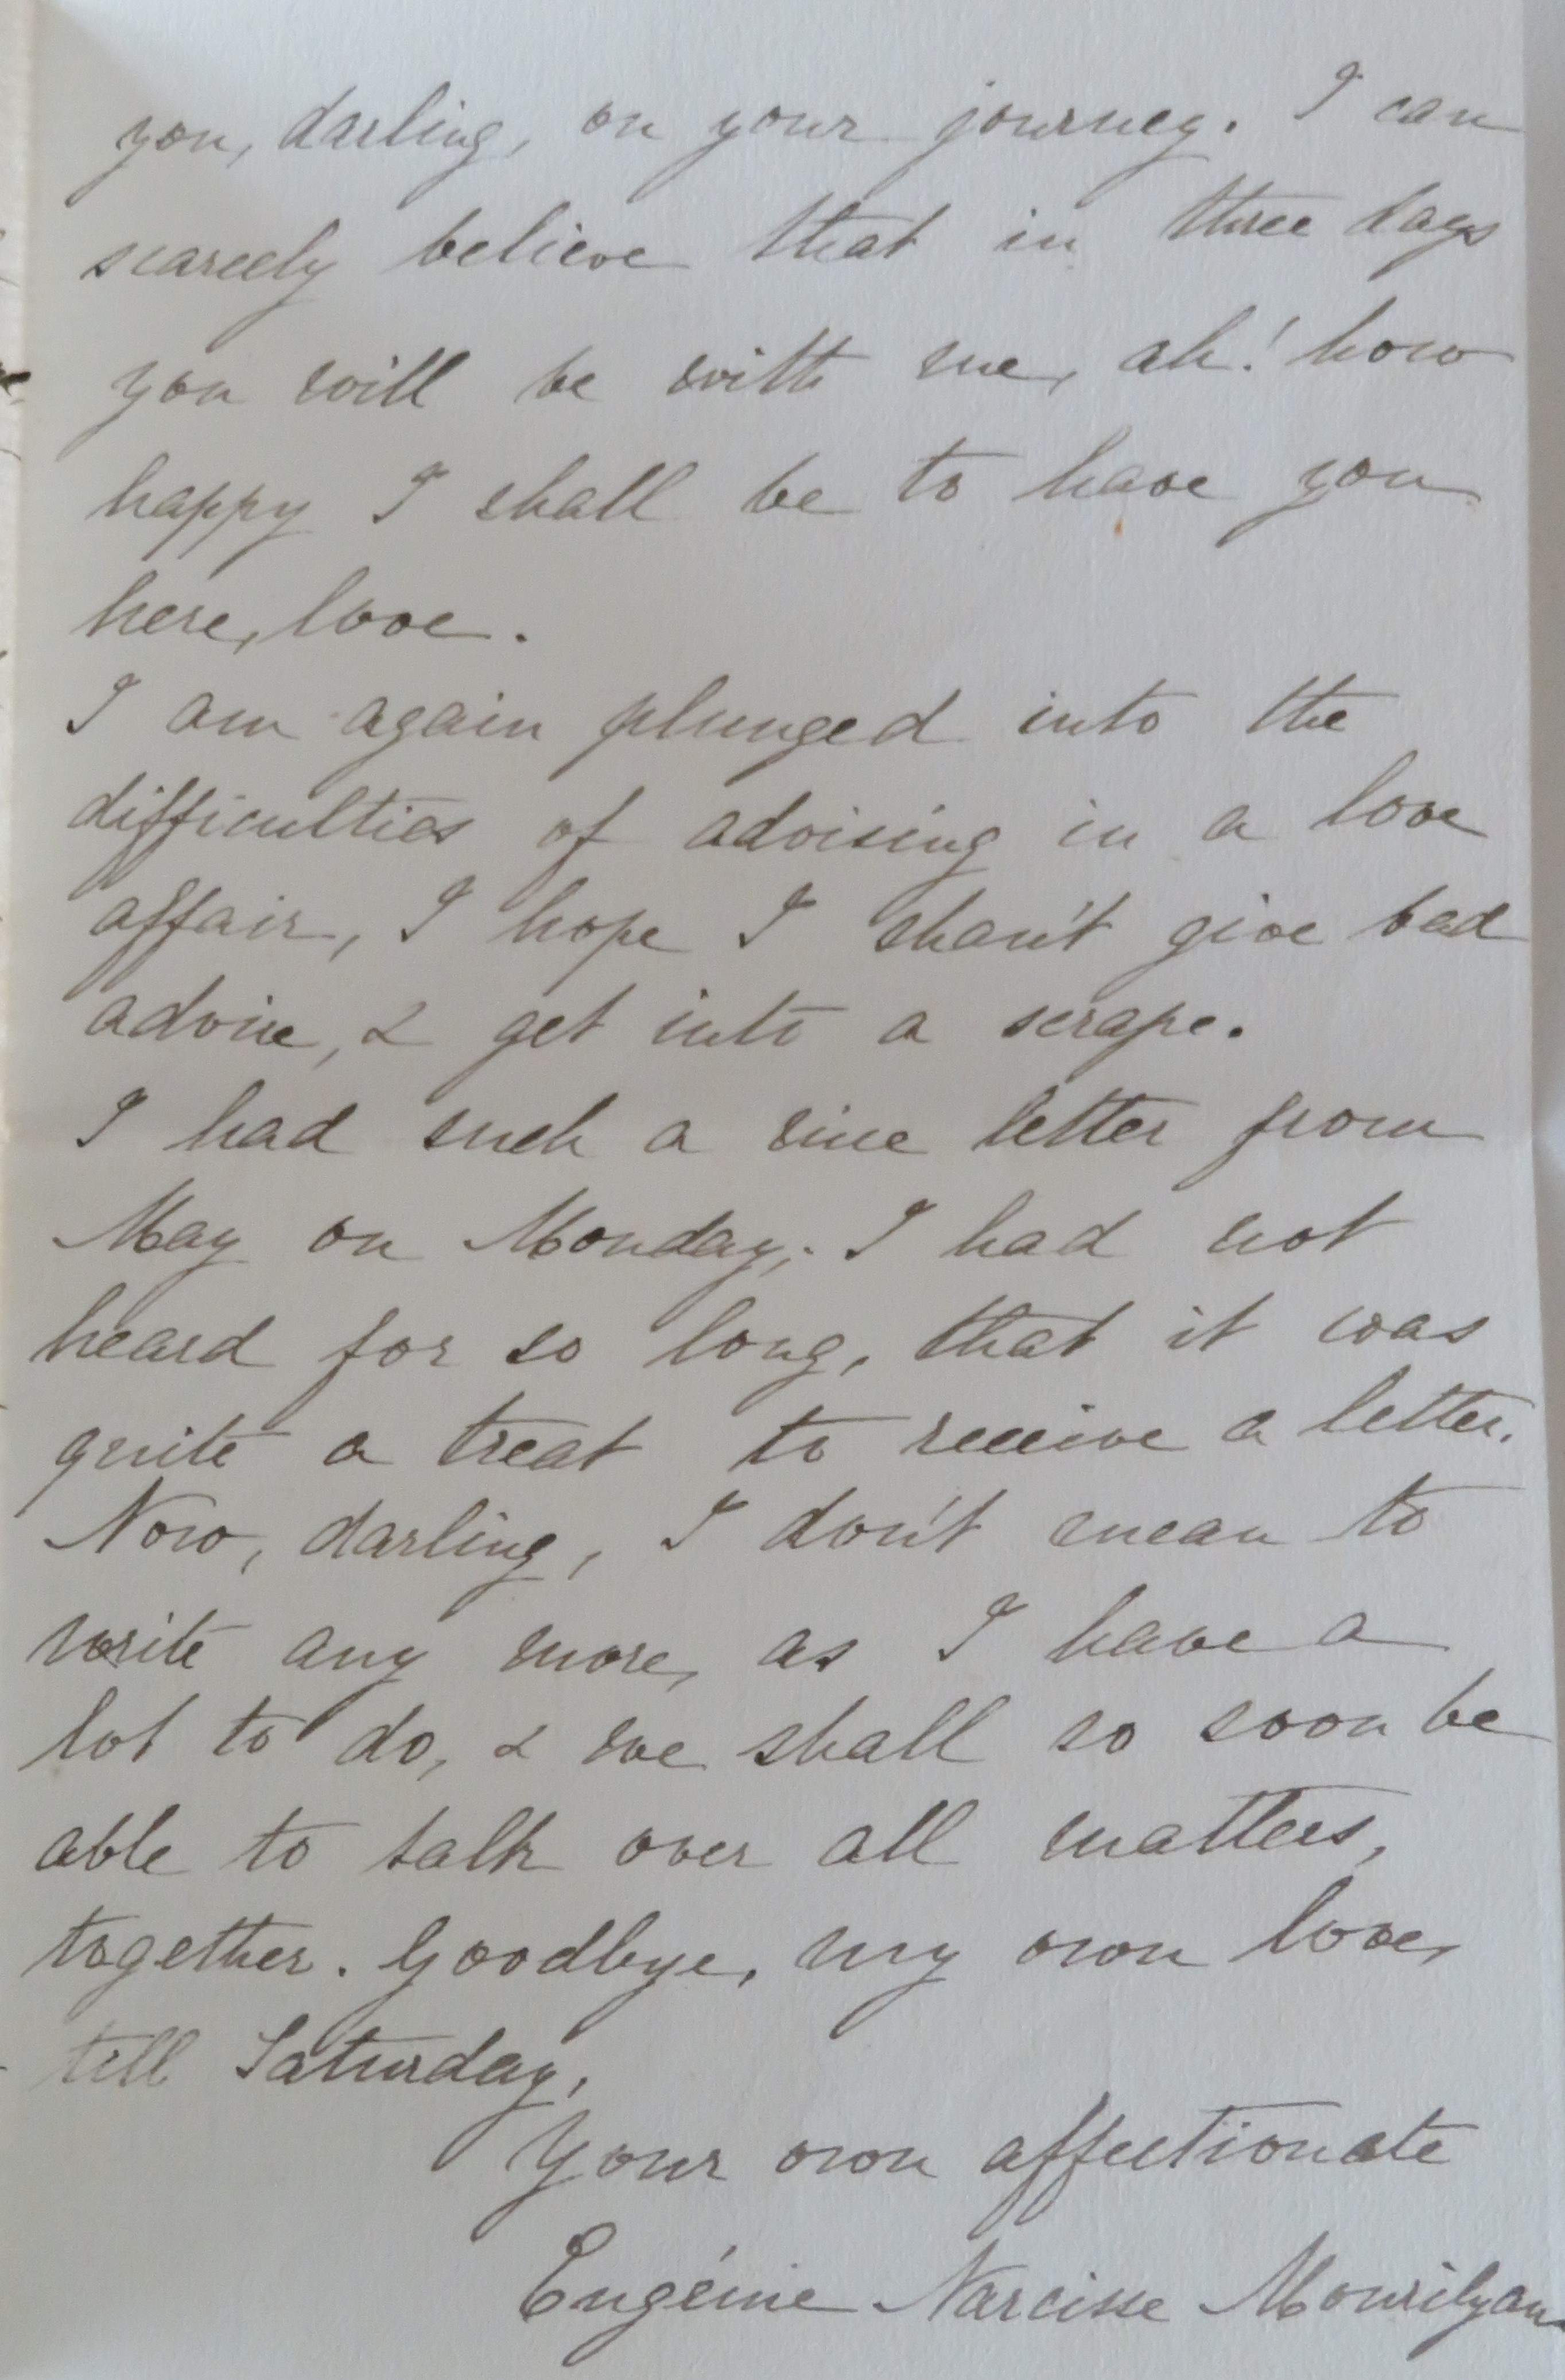 you, darling, on your journey. I can
scarcely believe that in three days
you will be with me, ah! how
happy I shall be to have you
here, love.
I am again plunged into the
difficulties of advising in a love
affair, I hope I shan't give bad
advice, & get into a scrape.
I had such a nice letter from
May on Monday; I had not
heard for so long, that it was
quite a treat to receive a letter.
Now, darling, I don't mean to
write any more, as I have a
lot to do, & we shall so soon be
able to talk over all matters,
together. Goodbye, my own love,
till Saturday,
Your own affectionate
Eugénie Narcisse Mourilyan